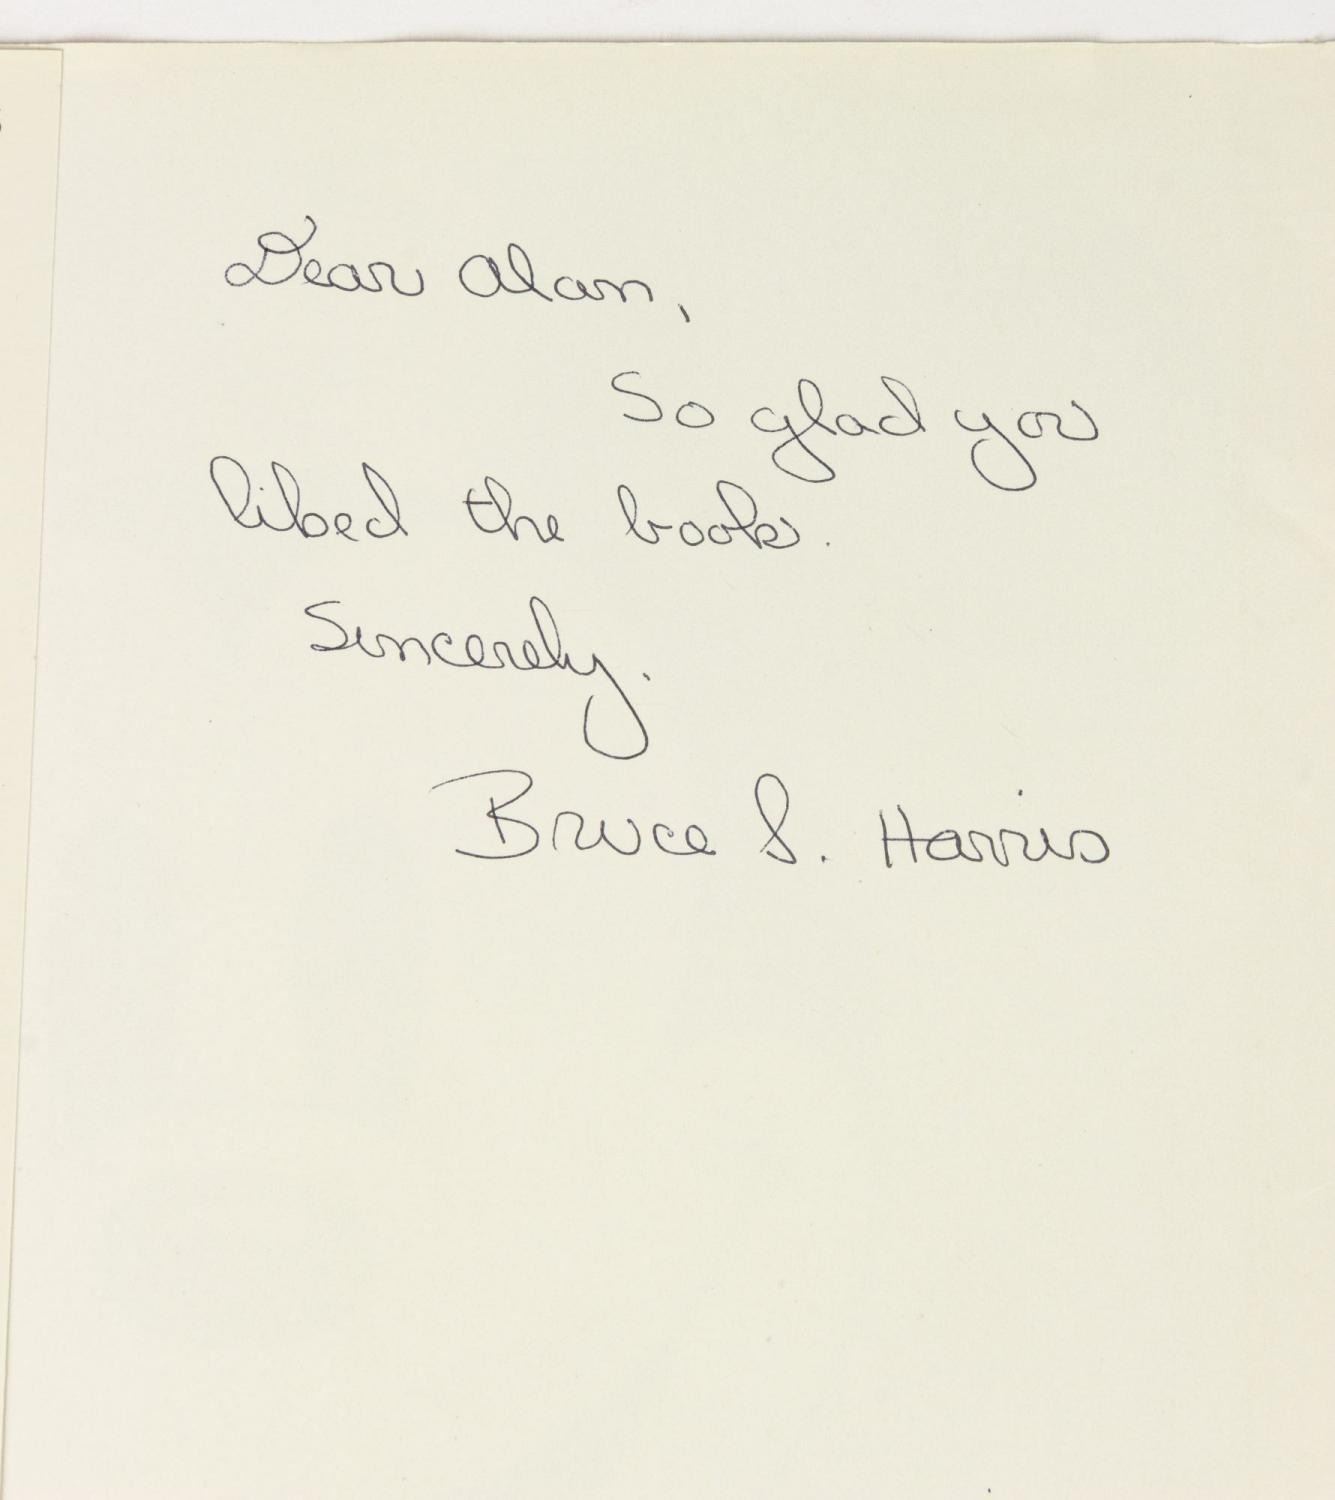 Dear Alan,
So glad you
liked the book.
Sincerely.
Bruce S. Harris